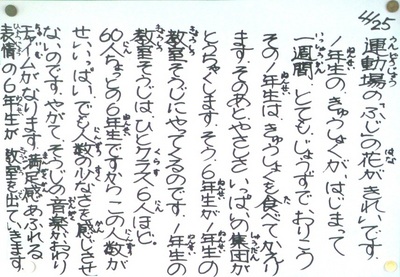 4/25
運動場の「ふじ」の花がきれいです。
1年生の、きゅうしょくが、はじまって
一週間、とても、じょうずで、おりこう
その1年生は、きゅうしょくを食べて、かえり
ます。そのあと、やさしさ、いっぱいの集団が
とうちゃくします。そう、6年生が1年生の
教室そうじにやってくるのです。1年生の
教室そうじは、ひとクラス、6人ほど。
60人ちょっとの6年生ですから、この人数が
せいいっぱい。でも人数の少なさを感じさせ
ないのです。やがて、そうじの音楽がおわり
チャイムがなります。満足感あふれる
表情の6年生が教室を出ていきます。